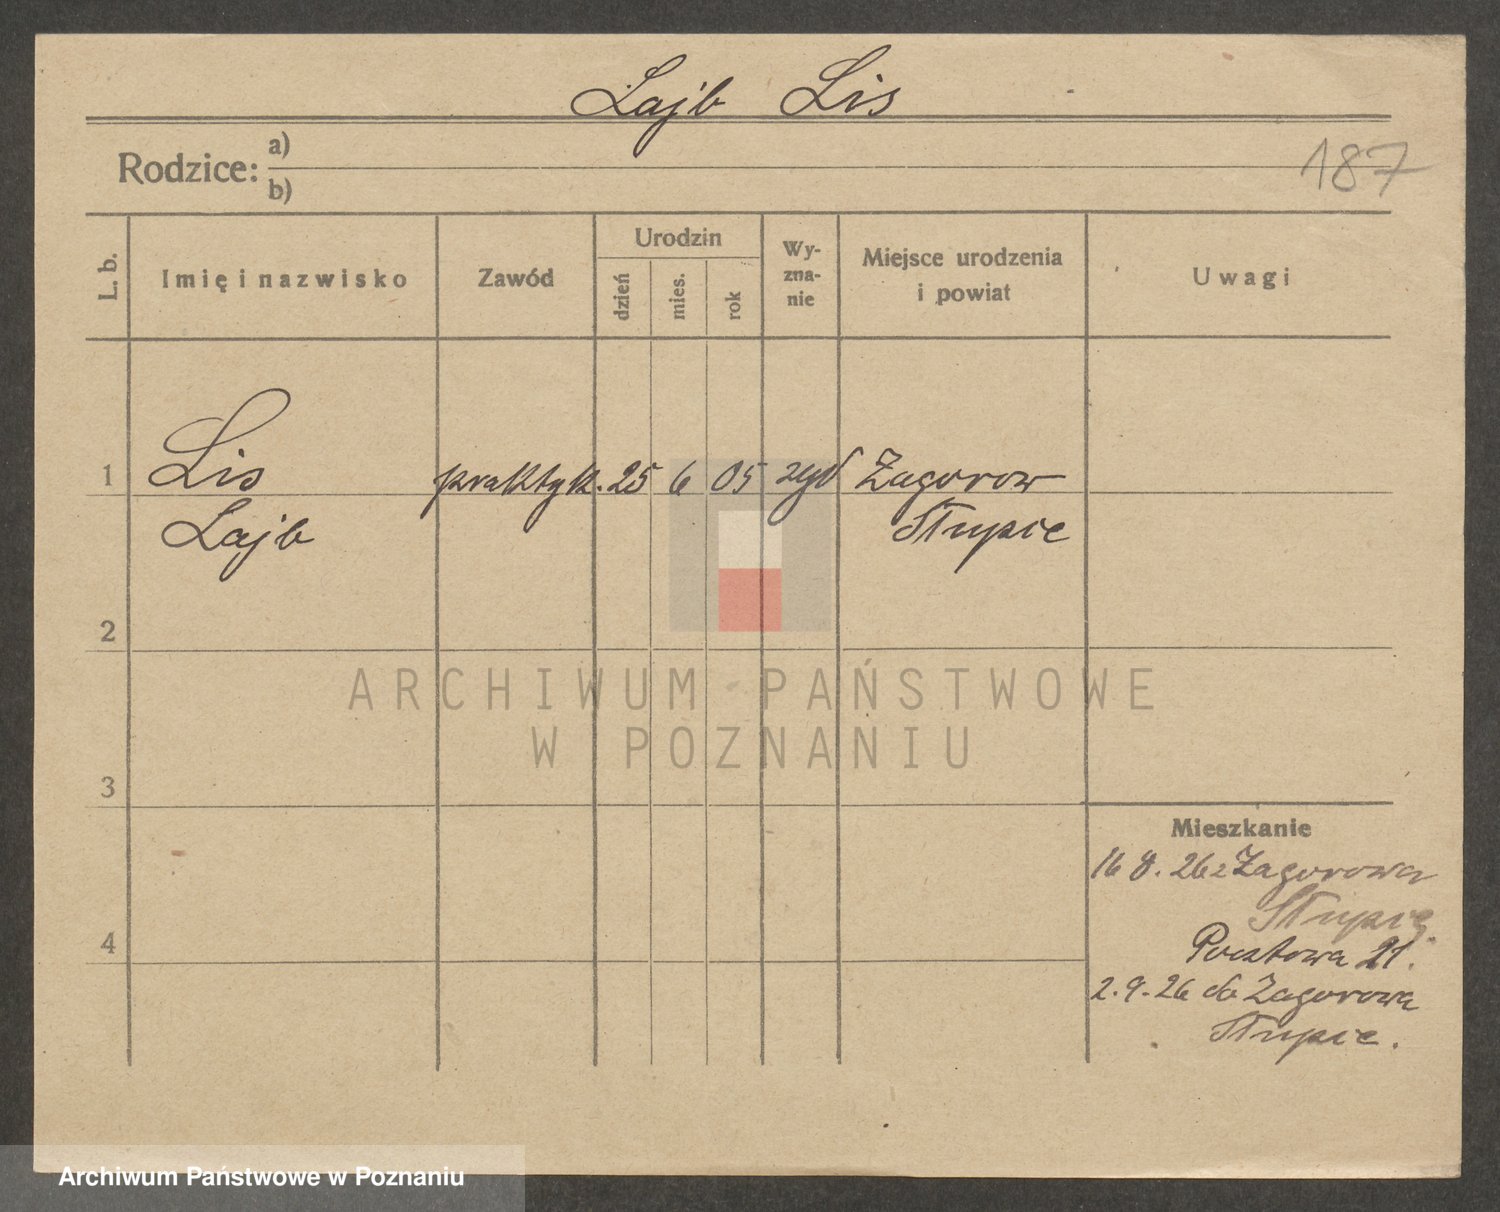 Lajb Lis
Rodzice: a)
b)
187
L. b.
Imię i nazwisko
Zawód
Urodzin
dzień
mies.
rok
Wy-
zna-
nie
Miejsce urodzenia
i powiat
Uwagi
1
Lis
Lajb
praktyk.
25
6
05
żyd
Zagorow
Słupie
2
3
4
Mieszkanie
16 8. 26 z Zagorowa
Słupie.
Pocztowa 21.
2. 9. 26 do Zagorowa
Słupie.
ARCHIWUM PAŃSTWOWE
W POZNANIU
Archiwum Państwowe w Poznaniu